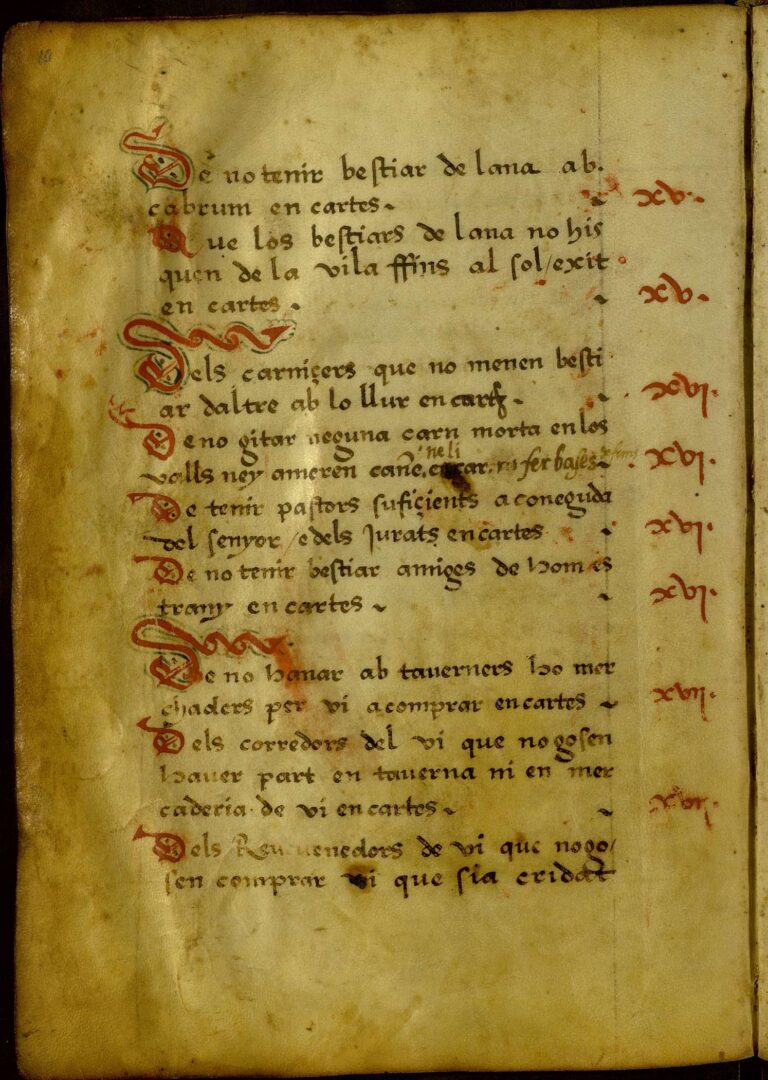 De no tenir bestiar de lana ab.
cabrum en cartes. xv.
Que los bestiars de lana no his
quen de la vila ffins al sol/exit
en cartes. xv.
Dels carniçers que no menen besti
ar daltre ab lo llur en cartes. xvi.
De no gitar neguna carn morta en los
valls ney ameren ne li fer bases xvi.
De tenir pastors sufiçients a coneguda
del senyor /e dels Jurats en cartes xvi.
De no tenir bestiar amiges de hom es
trany en cartes xvi.
De no hanar ab taverners ho mer
chaders per vi a comprar en cartes xvii.
Dels corredors del vi que no gosen
haver part en taverna ni en mer
caderia de vi en cartes. xvii.
Dels Revenedors de vi que no go/
sen comprar vi que sia cridat